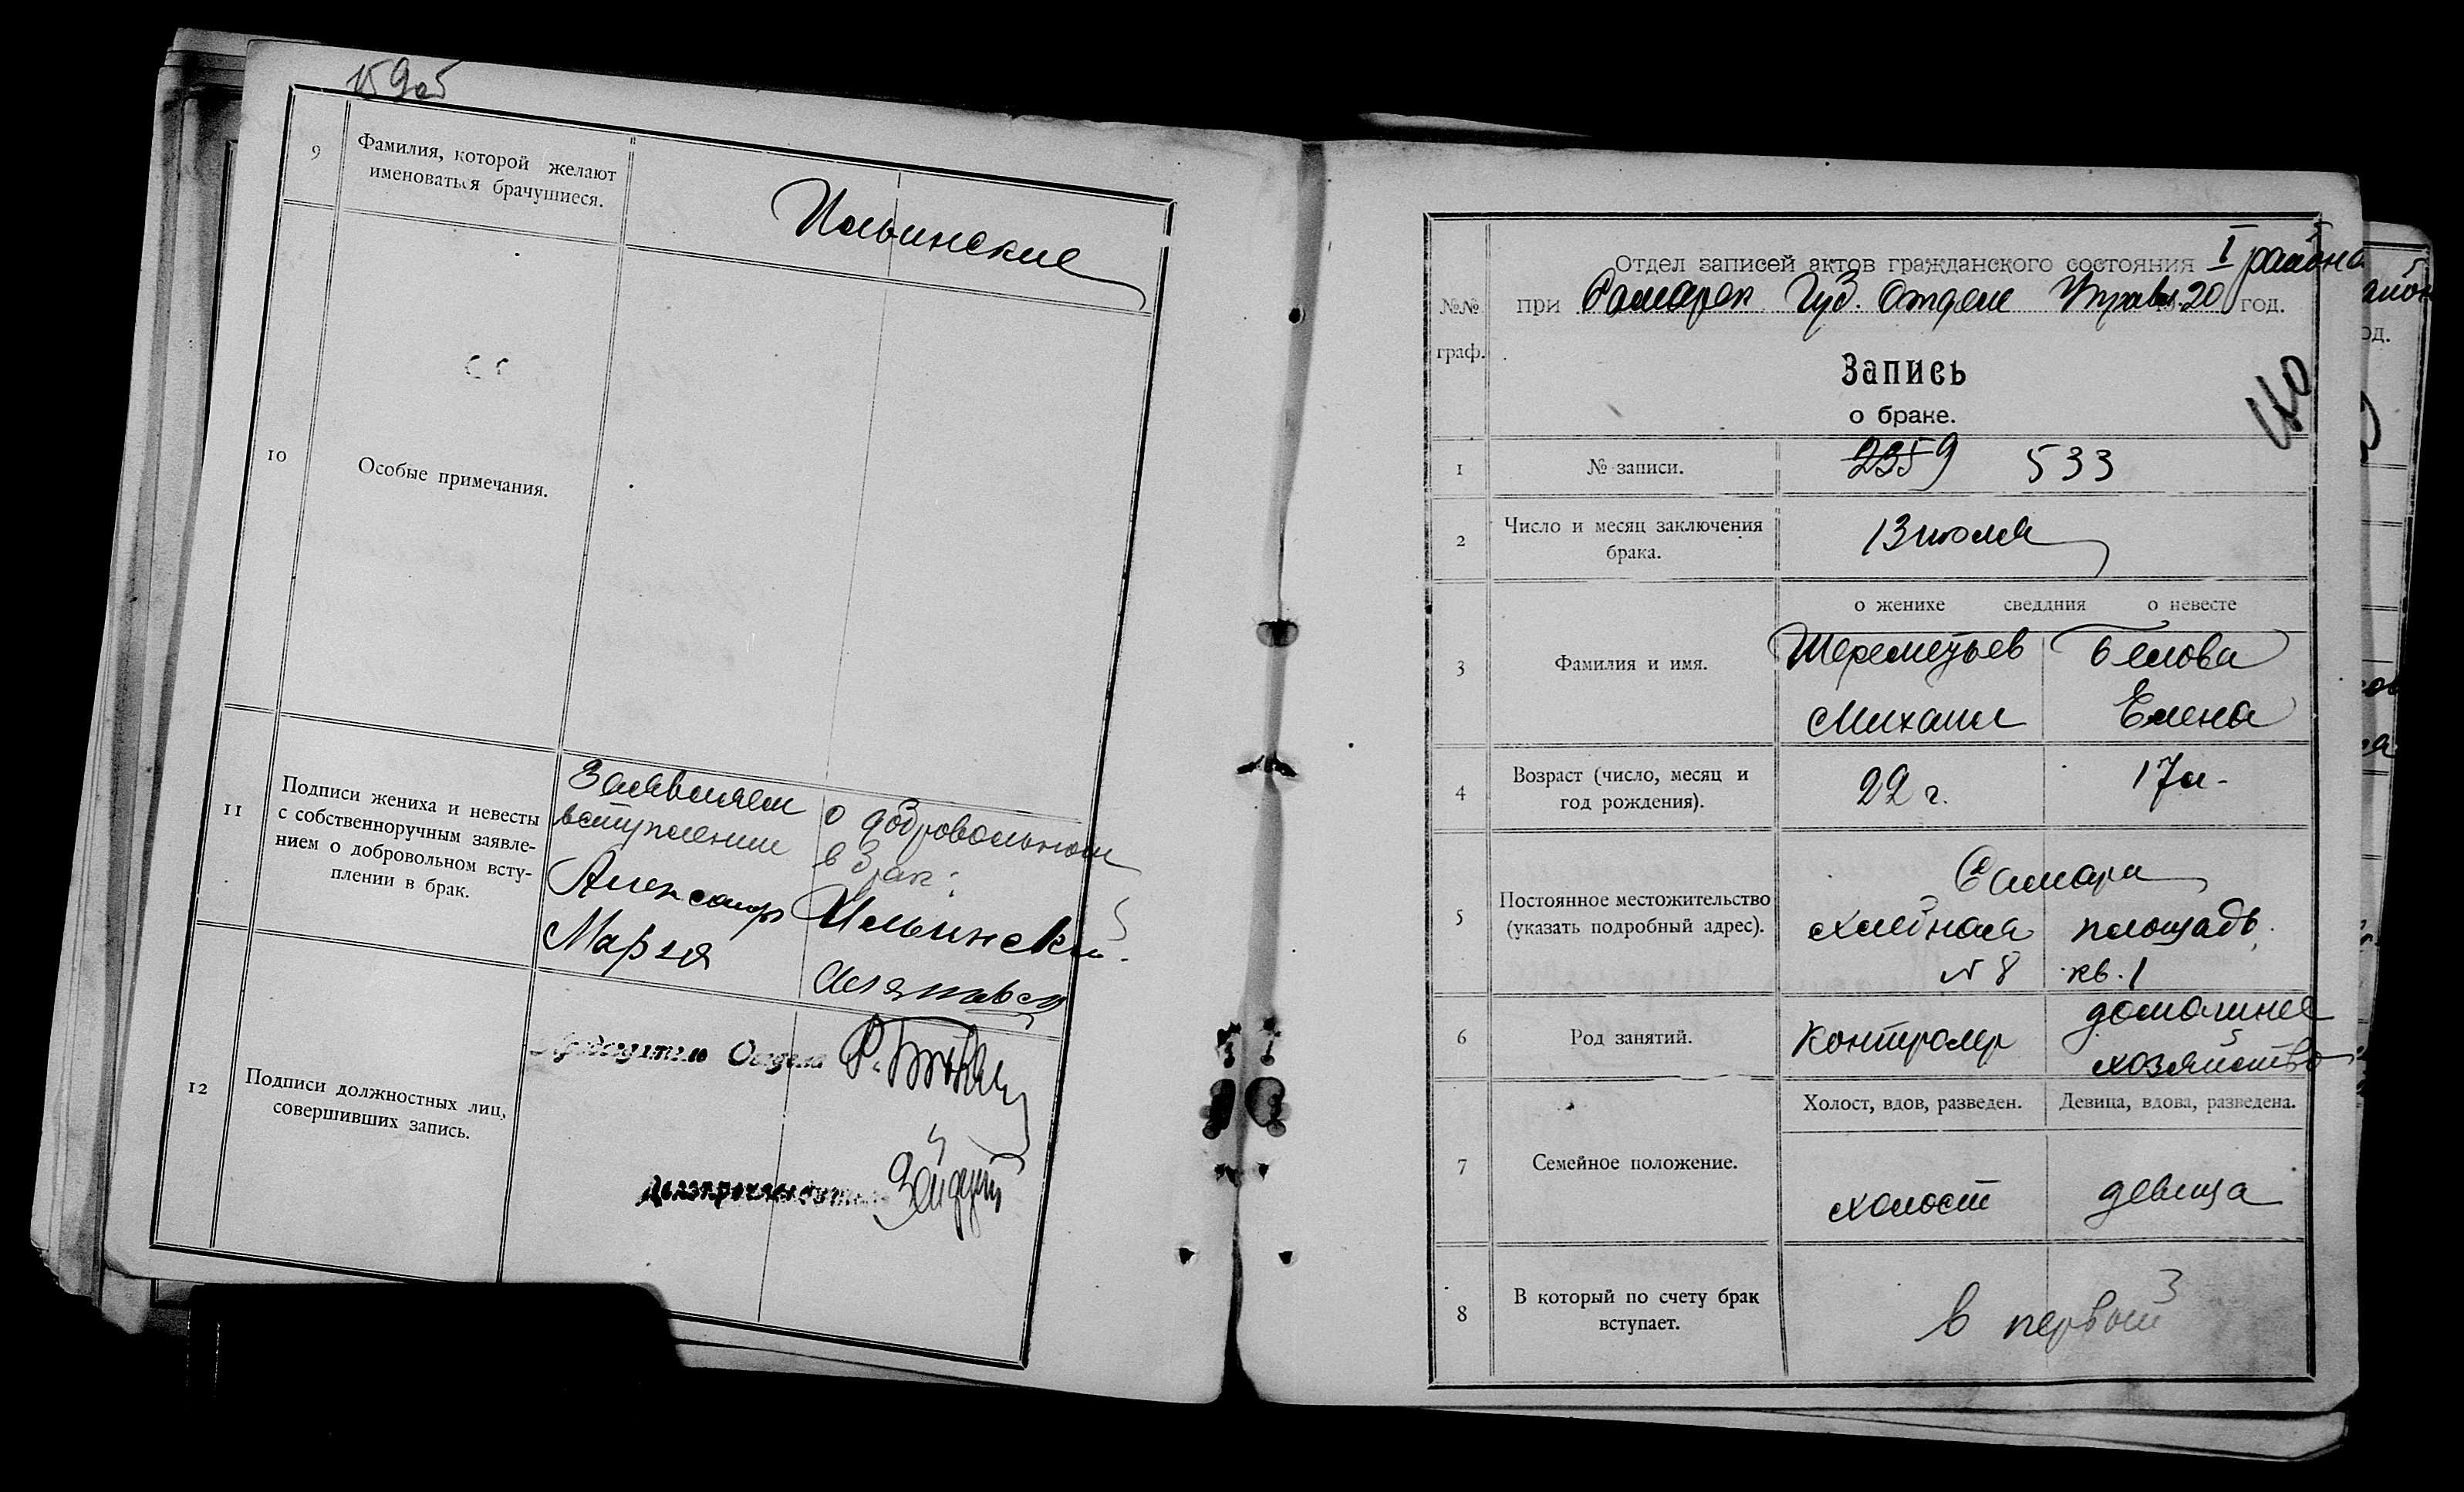 159об
9
Фамилия, которой желают
именоваться брачущиеся.
Ильинские
10
Особые примечания.
11
Подписи жениха и невесты
с собственноручным заявле-
нием о добровольном всту-
плении в брак.
Заявляем о добровольном
вступлении в брак:
Александр Ильинский.
Мария
12
Подписи должностных лиц,
совершивших запись.
Отдела
Делопроизводитель
№№
граф.
Отдел записей актов гражданского состояния I района
при Самарск Губ. Отделе Управл. 1920 год.
Запись
о браке.
160
1
№ записи.
2359 533
2
Число и месяц заключения
брака.
13 июля
о женихе сведдния о невесте
3
Фамилия и имя.
Шереметьев Белова
Михаил Елена
4
Возраст (число, месяц и
год рождения).
22 г. 17 л-
5
Постоянное местожительство
(указать подробный адрес).
Самара
Хлебная площадь.
№ 8 кв. 1
6
Род занятий.
контролер домашнее
хозяйство
7
Семейное положение.
Холост, вдов, разведен. Девица, вдова, разведена.
холост девица
8
В который по счету брак
вступает.
в первый